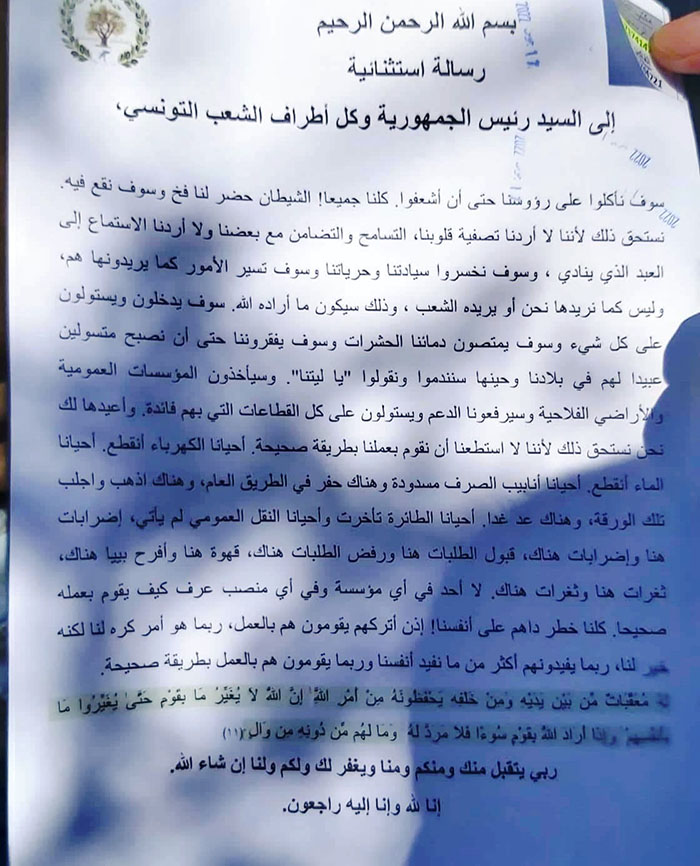 بسم الله الرحمن الرحيم
رسالة استثنائية
إلى السيد رئيس الجمهورية وكل أطراف الشعب التونسي،
2022
2022
2022
2022
سوف نأكلوا على رؤوسنا حتى أن أشعفوا. كلنا جميعا! الشيطان حضر لنا فخ وسوف نقع فيه.
نستحق ذلك لأننا لا أردنا تصفية قلوبنا، التسامح والتضامن مع بعضنا ولا أردنا الاستماع إلى
العبد الذي ينادي ، وسوف نخسروا سيادتنا وحرياتنا وسوف تسير الأمور كما يريدونها هم،
وليس كما نريدها نحن أو يريده الشعب ، وذلك سيكون ما أراده الله. سوف يدخلون ويستولون
على كل شيء وسوف يمتصون دمائنا الحشرات وسوف يفقروننا حتى أن نصبح متسولين
عبيدا لهم في بلادنا وحينها سنندموا ونقولوا "يا ليتنا". وسيأخذون المؤسسات العمومية
والأراضي الفلاحية وسيرفعونا الدعم ويستولون على كل القطاعات التي بهم فائدة. وأعيدها لك
نحن نستحق ذلك لأننا لا استطعنا أن نقوم بعملنا بطريقة صحيحة. أحيانا الكهرباء أنقطع. أحيانا
الماء أنقطع. أحيانا أنابيب الصرف مسدودة وهناك حفر في الطريق العام، وهناك اذهب واجلب
تلك الورقة، وهناك عد غدا. أحيانا الطائرة تأخرت وأحيانا النقل العمومي لم يأتي، إضرابات
هنا وإضرابات هناك، قبول الطلبات هنا ورفض الطلبات هناك، قهوة هنا وأفرح بيبيا هناك،
ثغرات هنا وثغرات هناك. لا أحد في أي مؤسسة وفي أي منصب عرف كيف يقوم بعمله
صحيحا. كلنا خطر داهم على أنفسنا! إذن أتركهم يقومون هم بالعمل، ربما هو أمر كره لنا لكنه
خير لنا، ربما يفيدونهم أكثر من ما نفيد أنفسنا وربما يقومون هم بالعمل بطريقة صحيحة.
لَهُ مُعَقِّبَاتٌ مِّن بَيْنِ يَدَيْهِ وَمِنْ خَلْفِهِ يَحْفَظُونَهُ مِنْ أَمْرِ اللَّهِ إِنَّ اللَّهَ لَا يُغَيِّرُ مَا بِقَوْمٍ حَتَّى يُغَيِّرُوا مَا
بِأَنفُسِهِمْ وَإِذَا أَرَادَ اللَّهُ بِقَوْمٍ سُوءًا فَلَا مَرَدَّ لَهُ وَمَا لَهُم مِّن دُونِهِ مِن وَالٍ (١١)
ربي يتقبل منك ومنكم ومنا ويغفر لك ولكم ولنا إن شاء الله.
إنا لله وإنا إليه راجعون.